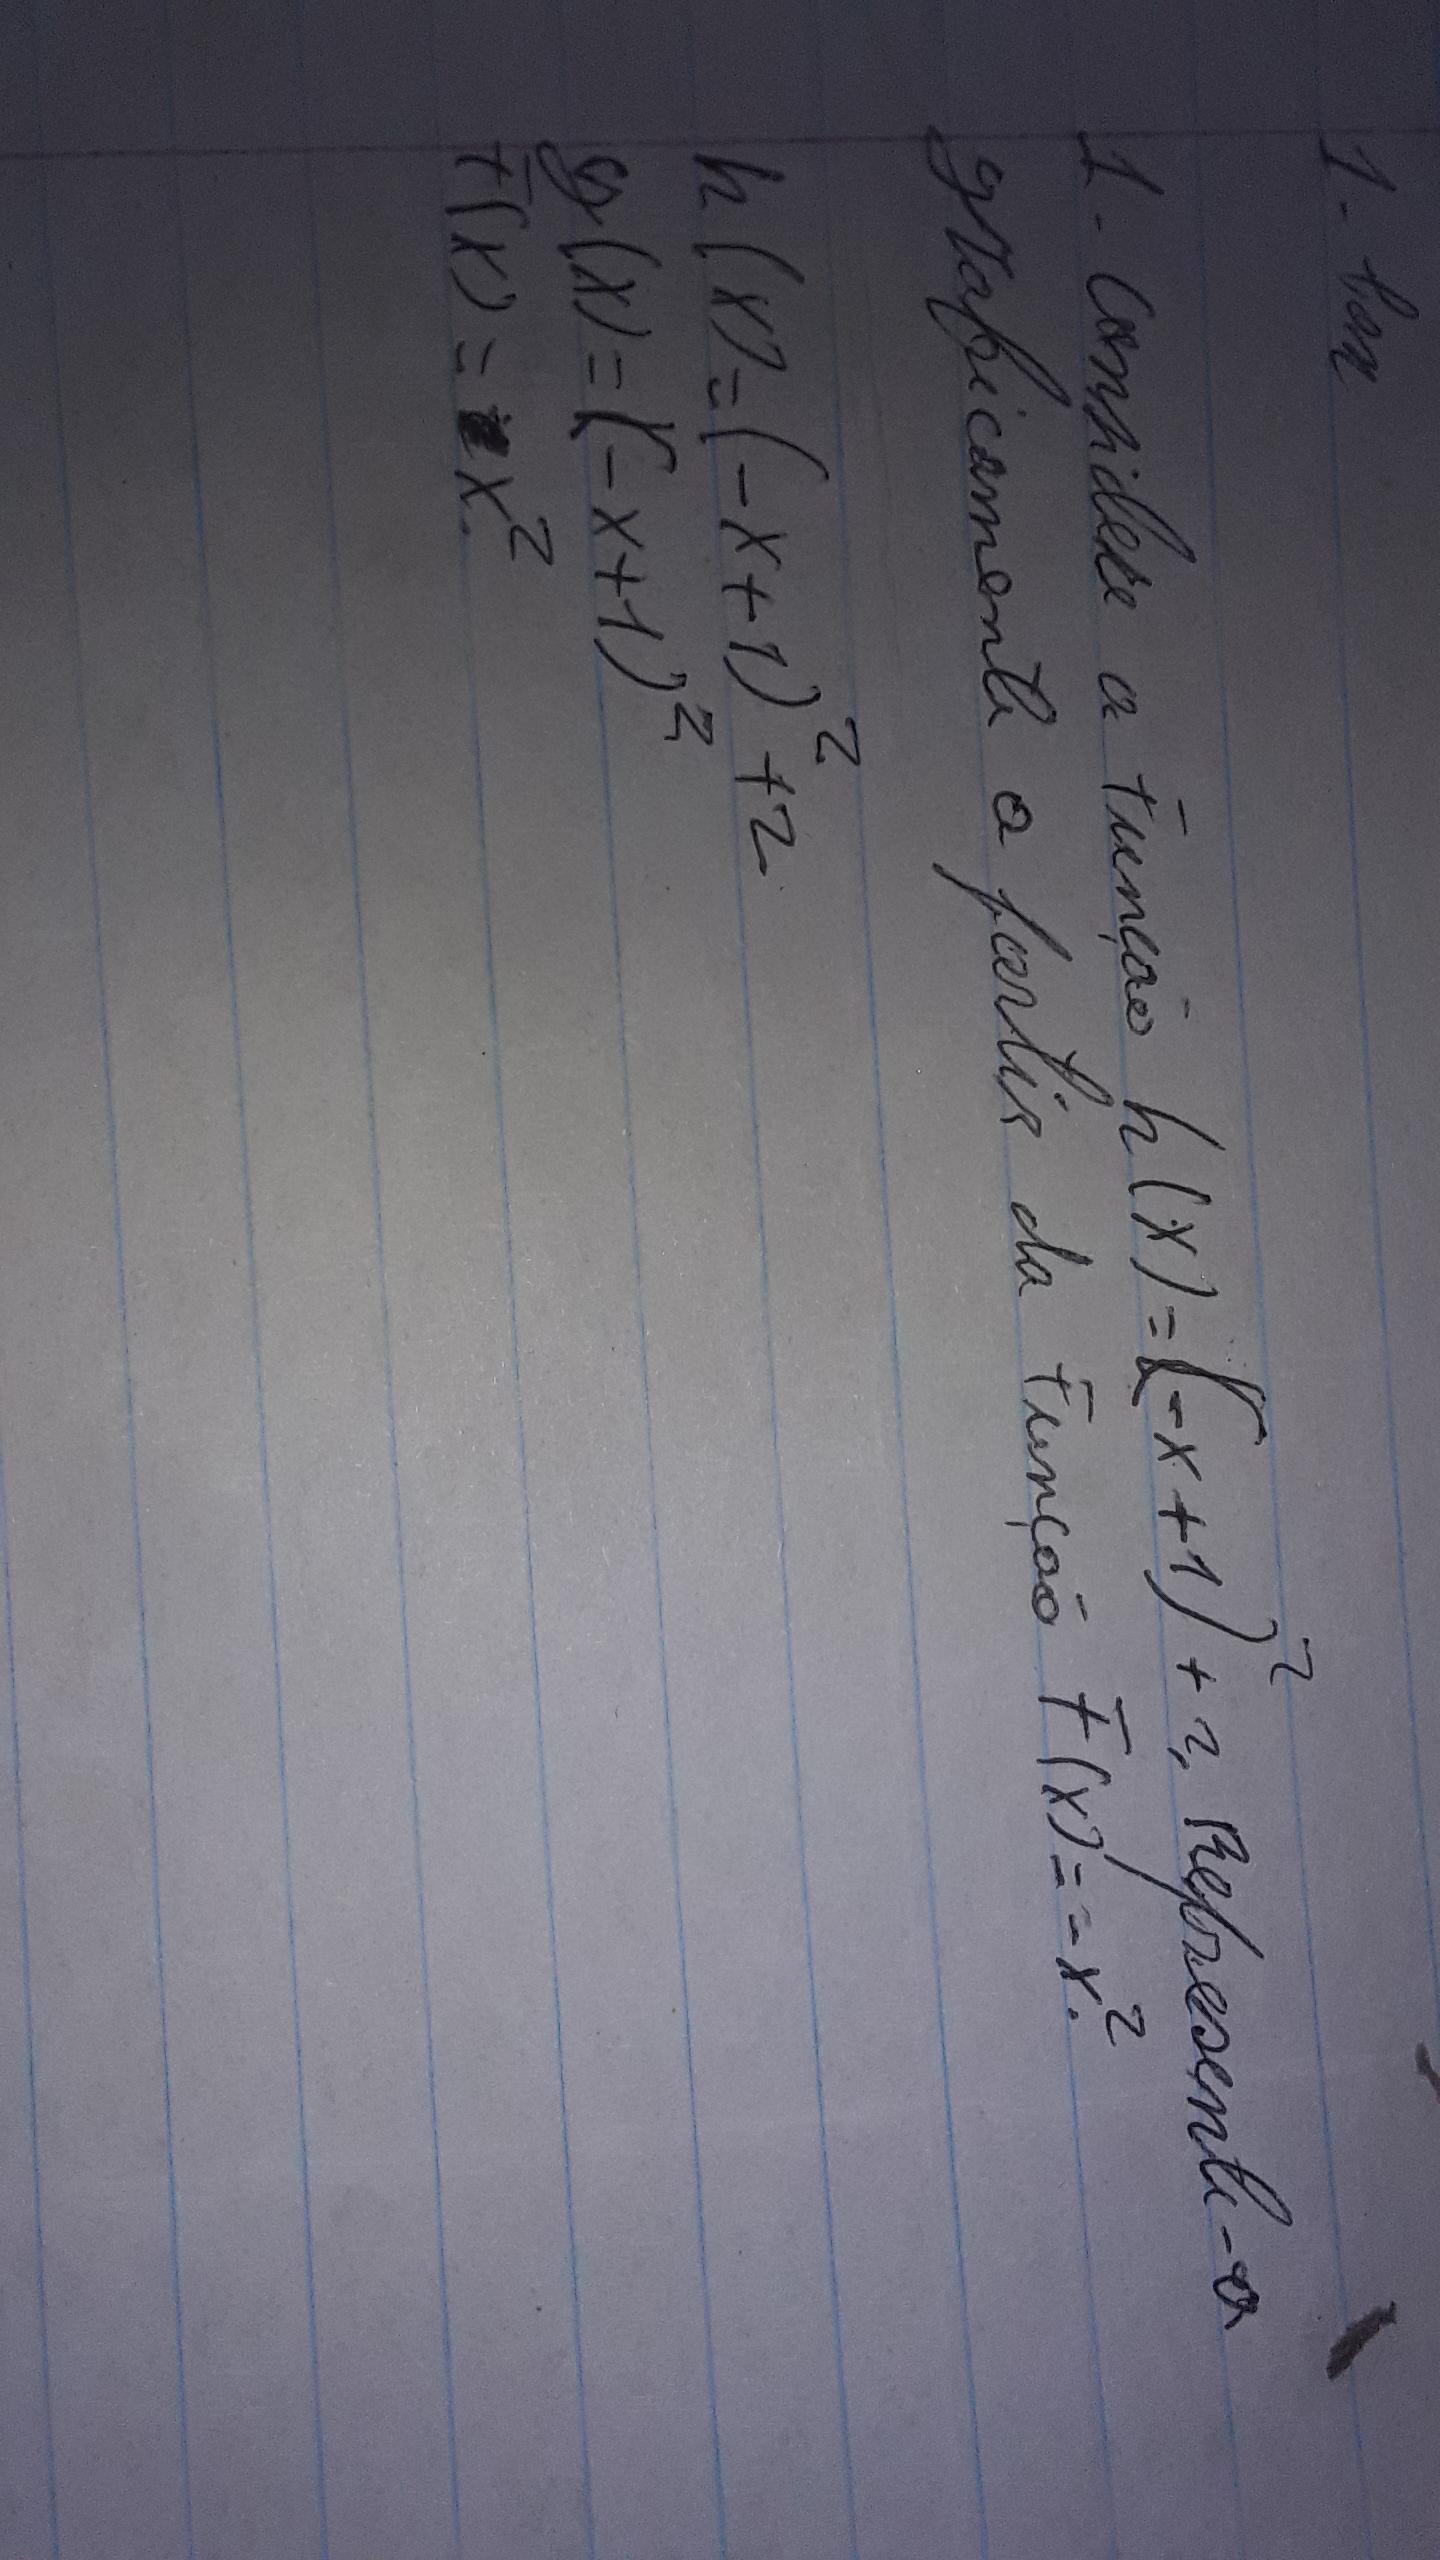 1- 
1- Considere a função h(x)=(-x+1)²+2, Represente-a
graficamente a partir da função F(x)=-x².
h(x)=(-x+1)²+2
g(x)=(-x+1)²
F(x)=x²